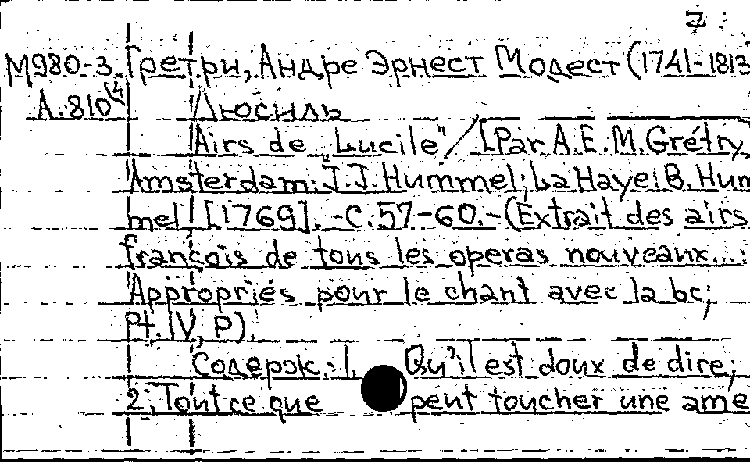 7
М980-3 Гретри, Андре Эрнест Модест (1741-1813
А.810(4 Люсиль
Airs de "Lucile" / [Par A.E.M.Grétry.
Amsterdam: J.J.Hummel; La Haye: B. Hum
mel [1769]. -C.57-60.-(Extrait des airs
françois de tous les operas nouveaux...:
Appropriés pour le chant avec la bc;
Pt. IV, P).
Содерж.: 1. Qu'il est doux de dire;
2. Tout ce que peut toucher une ame